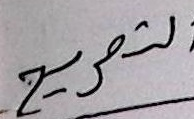 التصريح